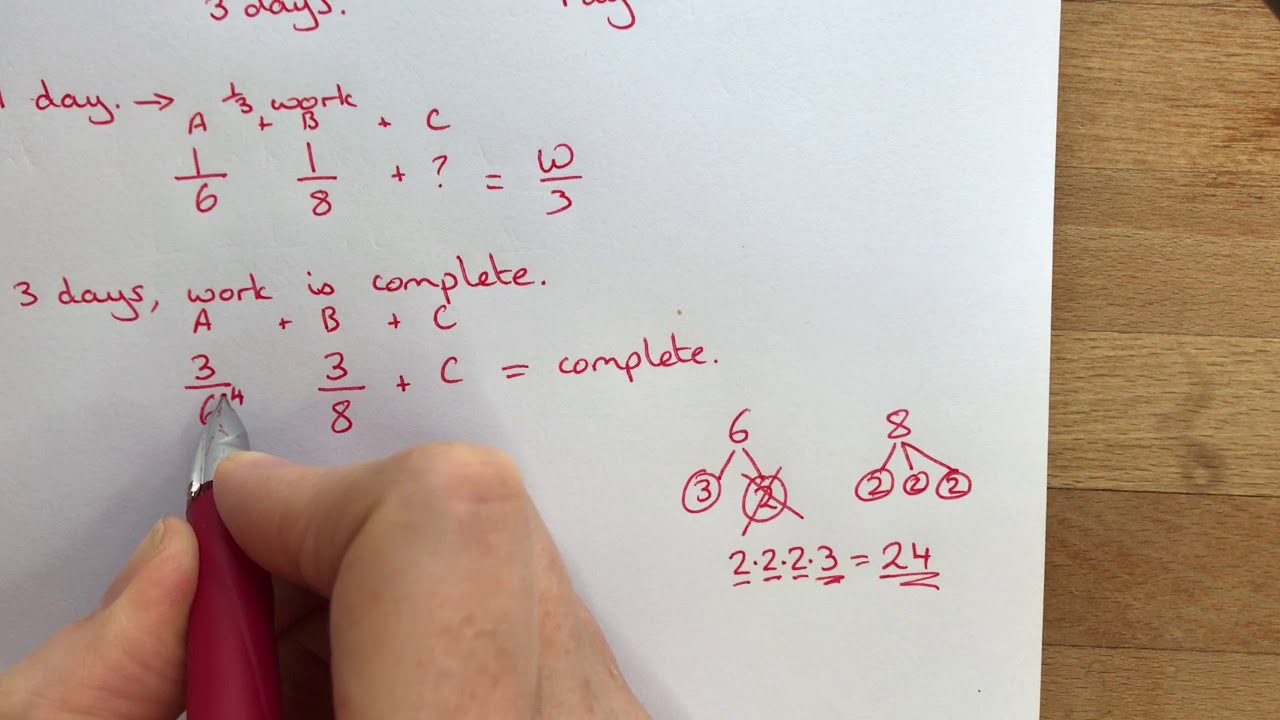 3 days.
day. → 1/3 work
A + B + C
1/6 1/8 + ? = W/3
3 days, work is complete.
A + B + C
3/6 4 3/8 + C = complete.
6 8
3 2 2 2 2
2·2·2·3 = 24